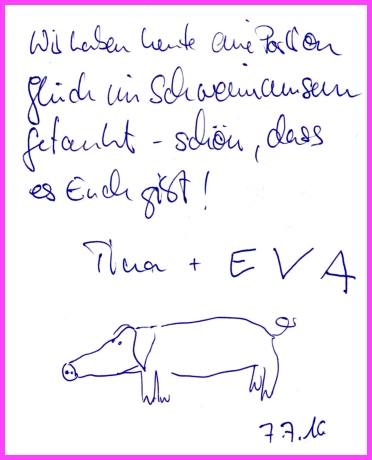 Wir haben heute eine Portion
Glück im Schweinemuseum
getankt - schön, dass
es Euch gibt!
+ EVA
7.7.16